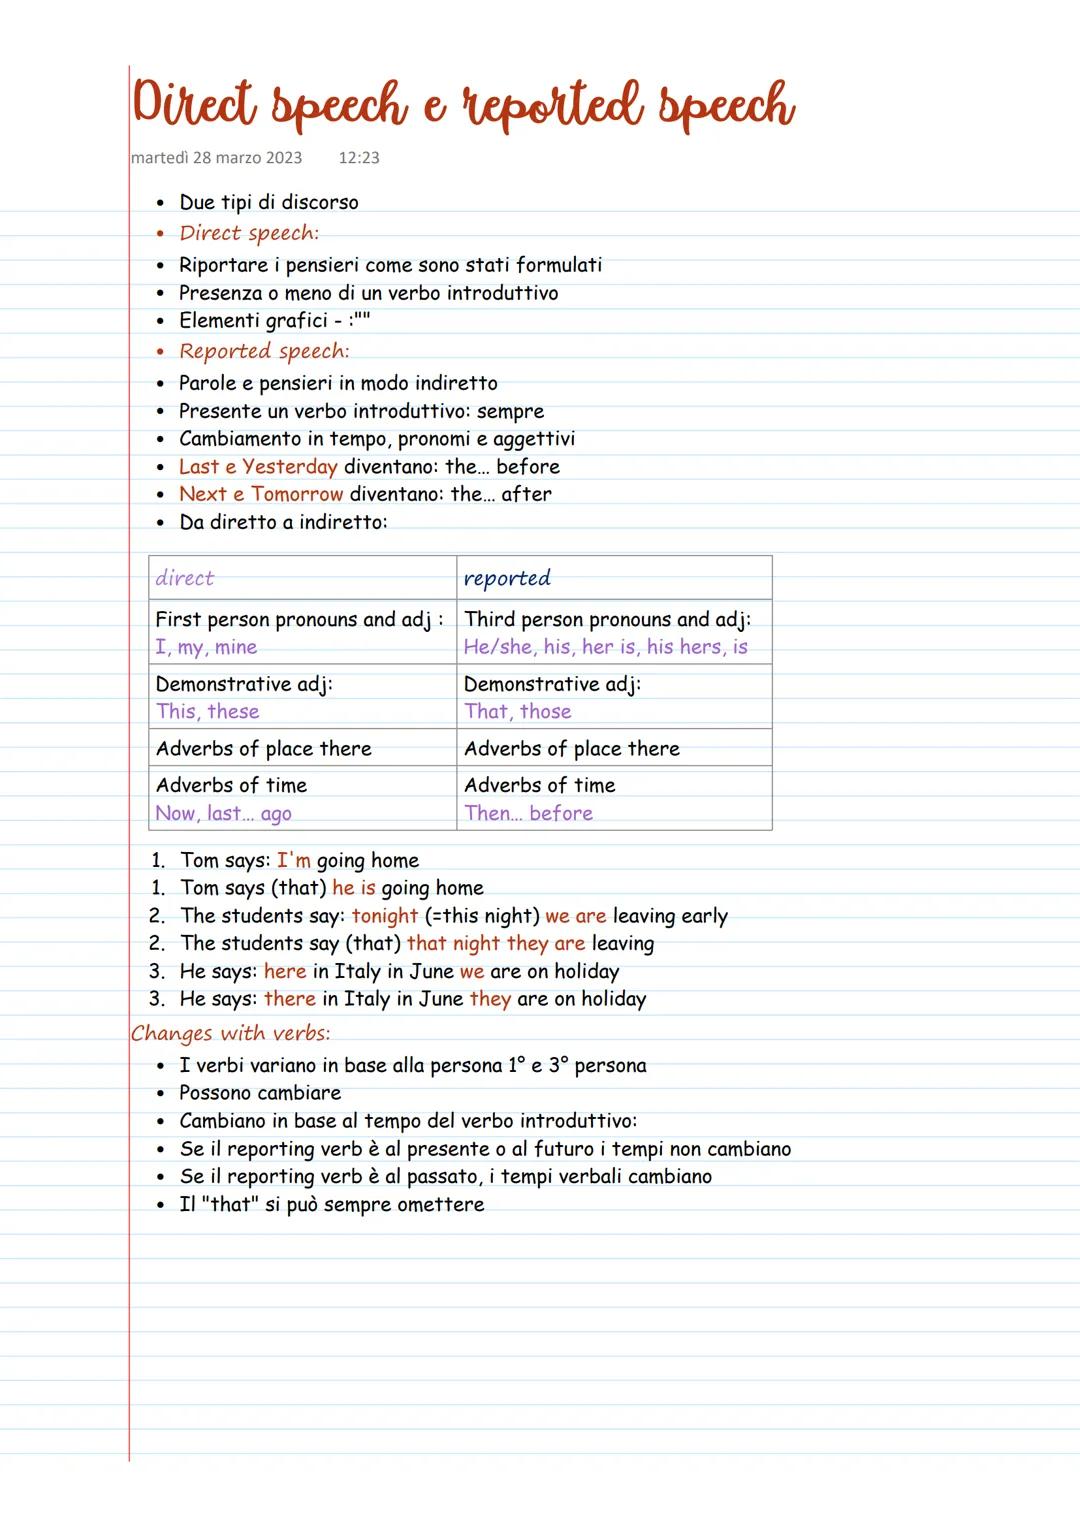 Direct speech e reported speech
martedì 28 marzo 2023 12:23
• Due tipi di discorso
• Direct speech:
• Riportare i pensieri come sono stati formulati
• Presenza o meno di un verbo introduttivo
• Elementi grafici - :""
• Reported speech:
• Parole e pensieri in modo indiretto
• Presente un verbo introduttivo: sempre
• Cambiamento in tempo, pronomi e aggettivi
• Last e Yesterday diventano: the... before
• Next e Tomorrow diventano: the... after
• Da diretto a indiretto:
direct reported
First person pronouns and adj : Third person pronouns and adj:
I, my, mine He/she, his, her is, his hers, is
Demonstrative adj: Demonstrative adj:
This, these That, those
Adverbs of place there Adverbs of place there
Adverbs of time Adverbs of time
Now, last... ago Then... before
1. Tom says: I'm going home
1. Tom says (that) he is going home
2. The students say: tonight (=this night) we are leaving early
2. The students say (that) that night they are leaving
3. He says: here in Italy in June we are on holiday
3. He says: there in Italy in June they are on holiday
Changes with verbs:
• I verbi variano in base alla persona 1° e 3° persona
• Possono cambiare
• Cambiano in base al tempo del verbo introduttivo:
• Se il reporting verb è al presente o al futuro i tempi non cambiano
• Se il reporting verb è al passato, i tempi verbali cambiano
• Il "that" si può sempre omettere